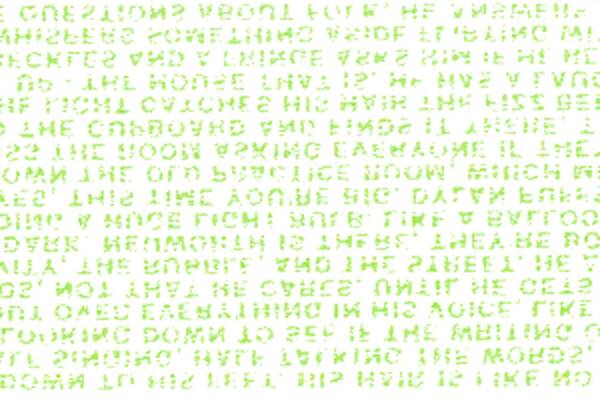 DOWN TO HIS FEET. HIS HAIR IS LIKE NO
SINGING, HALF TALKING THE WORDS,
LOOKING DOWN TO SEE IF THE WRITING
OVER EVERYTHING IN HIS VOICE. LIKE
NOT THAT HE CARES. UNTIL HE GETS
THE BUBBLE, AND THE STREET. HE
DARK. IS THERE, THEY'RE
A HUGE LIGHT BULB, LIKE A BALLOO
THIS TIME YOU'RE BIG, DYLAN
DOWN THE OLD PRACTICE ROOM, WHICH
THE ROOM ASKING EVERYONE IF THEY
THE CUPBOARD AND FINDS IT THERE,
HE LIGHT CATCHES HIS HAIR THE FIZZ
UP - THE HOUSE THAT IS, HE HAS A
AND A FRINGE ASKS HIM IF HE
WHISPERS SOMETHING ASIDE FLIRTING
QUESTIONS ABOUT FOLK, HE ANSWERS